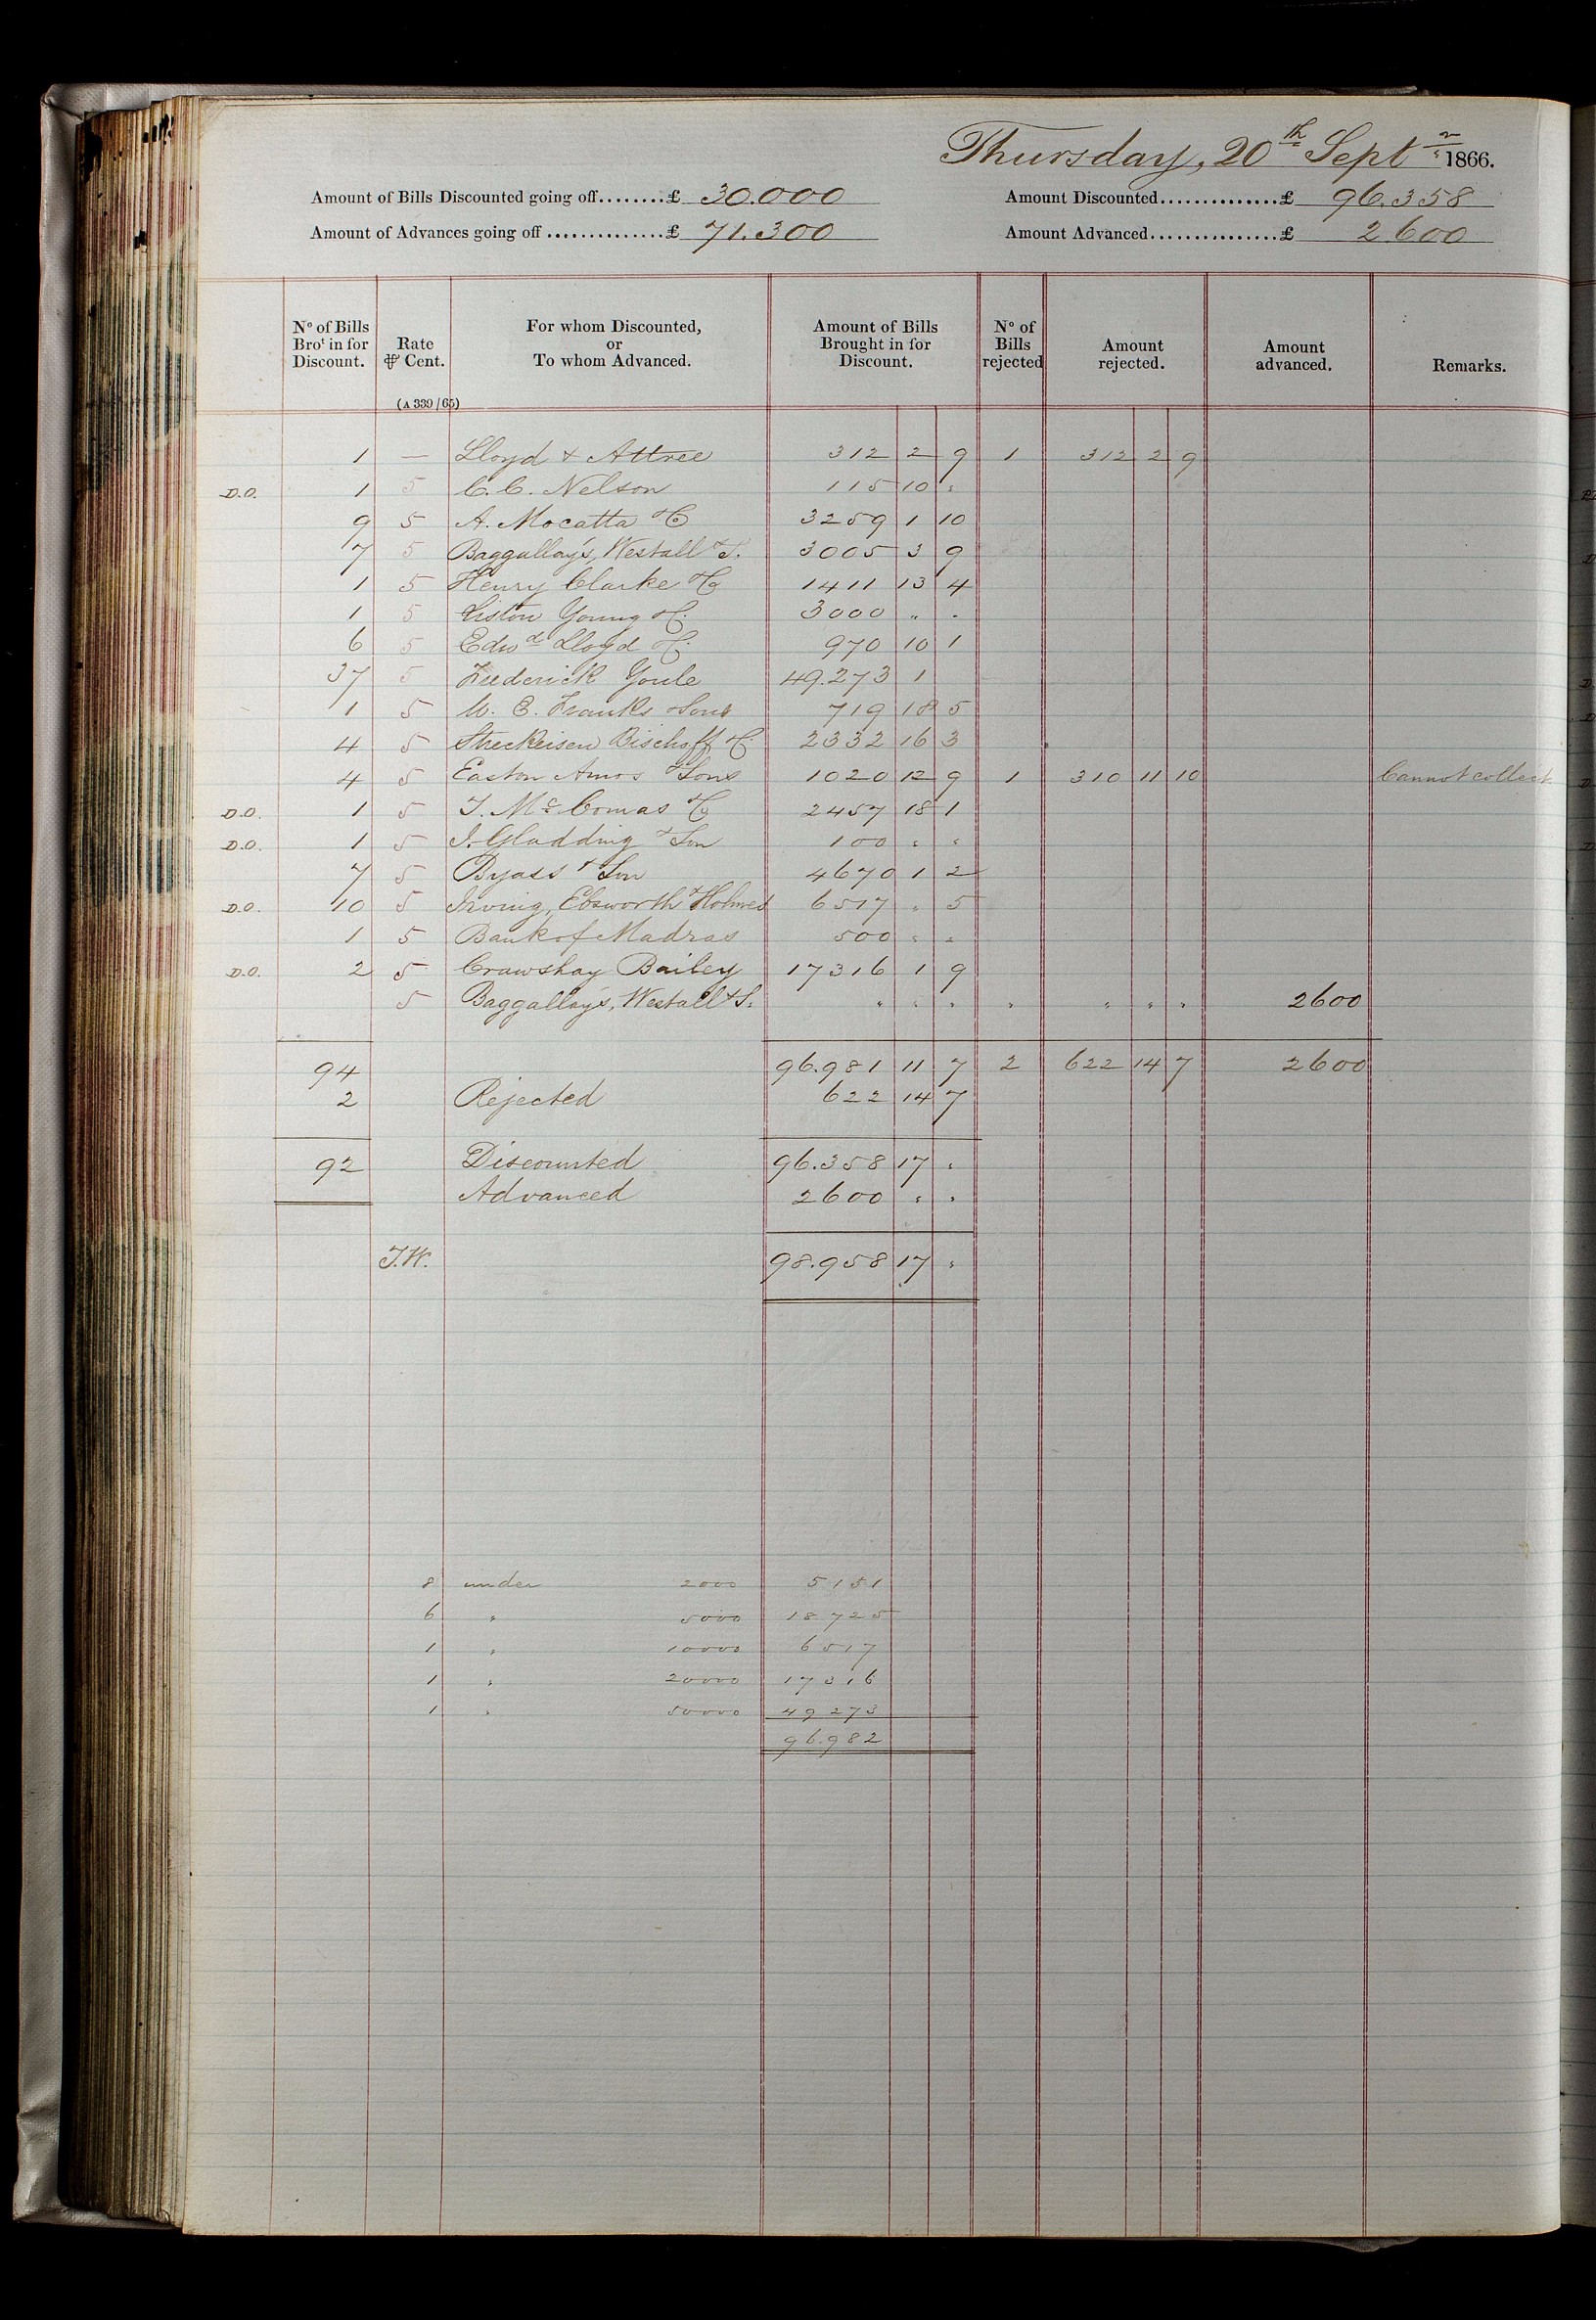 Thursday, 20th Septr 1866.
Amount of Bills Discounted going off........£ 30.000 Amount Discounted..............£ 96.358
Amount of Advances going off..............£ 71.300 Amount Advanced...............£ 2600
No of Bills Brot in for Discount. Rate ⅌ Cent. For whom Discounted, or To whom Advanced. Amount of Bills Brought in for Discount. No of Bills rejected Amount rejected. Amount advanced. Remarks.
(A 339/65)
1 — Lloyd & Attree 312 2 9 1 312 2 9
D.O. 1 5 C. C. Nelson 115 10 "
9 5 A. Mocatta & Co 3259 1 10
7 5 Baggallay's, Westall & S. 3005 3 9
1 5 Henry Clarke & Co 1411 13 4
1 5 Liston Young & Co. 3000 " "
6 5 Edwd Lloyd & Co. 970 10 1
37 5 Frederick Youle 49.273 1
1 5 Franks & Sons 719 18 5
4 5 Streckeisen Bischoff & Co. 2332 16 3
4 5 Easton Amos & Sons 1020 12 9 1 310 11 10 Cannot collect
D.O. 1 5 McComas & Co 2457 18 1
D.O. 1 5 Gladding & Son 100 " "
7 5 Byass & Son 4670 1 2
D.O. 10 5 Irving, Ebsworth & Holmes 6517 " 5
1 5 Bank of Madras 500 " "
D.O. 2 5 Crawshay Bailey 17316 1 9
5 Baggallay's, Westall & S. " " " " " " " 2600
94 96.981 11 7 2 622 14 7 2600
2 Rejected 622 14 7
92 Discounted 96.358 17 "
Advanced 2600 " "
J.W. 98.958 17 "
8 under 2000 5151
6 " 5000 18725
1 " 10000 6517
1 " 20000 17316
1 " 50000 49273
96.982